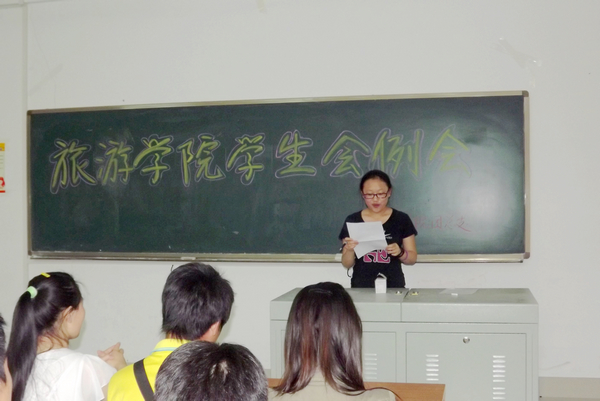 旅游学院学生会例会